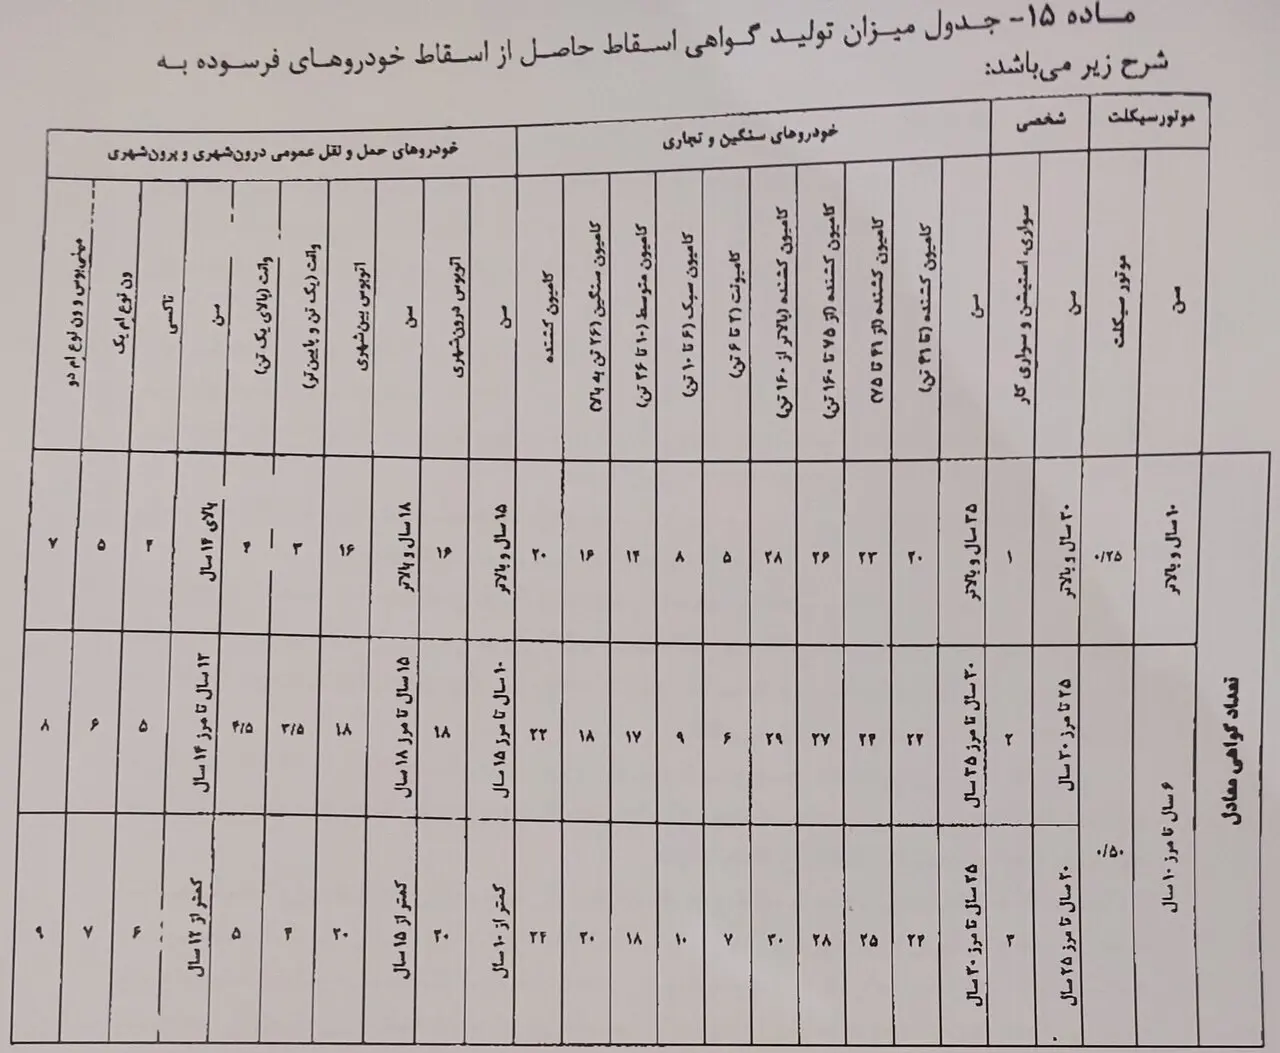 ماده ۱۵- جدول میزان تولید گواهی اسقاط حاصل از اسقاط خودروهای فرسوده به
شرح زیر می‌باشد:
موتورسیکلت | شخصی | خودروهای سنگین و تجاری | خودروهای حمل و نقل عمومی درون‌شهری و برون‌شهری
سن | موتور سیکلت | سن | سواری، استیشن و سواری کار | سن | کامیون کشنده (تا ۴۱ تن) | کامیون کشنده (از ۴۱ تا ۷۵) | کامیون کشنده (از ۷۵ تا ۱۶۰ تن) | کامیون کشنده (بالاتر از ۱۶۰ تن) | کامیونت (۲ تا ۶ تن) | کامیون سبک (۶ تا ۱۰ تن) | کامیون متوسط (۱۰ تا ۲۶ تن) | کامیون سنگین (۲۶ تن به بالا) | کامیون کشنده | سن | اتوبوس درون‌شهری | سن | اتوبوس بین‌شهری | وانت (یک تن و پایین‌تر) | وانت (بالای یک تن) | سن | تاکسی | ون نوع ام یک | مینی‌بوس و ون نوع ام دو
تعداد گواهی معادل
۱۰ سال و بالاتر | ۰/۲۵ | ۳۰ سال و بالاتر | ۱ | ۳۵ سال و بالاتر | ۲۰ | ۲۳ | ۲۶ | ۲۸ | ۵ | ۸ | ۱۴ | ۱۶ | ۲۰ | ۱۵ سال و بالاتر | ۱۶ | ۱۸ سال و بالاتر | ۱۶ | ۳ | ۴ | بالای ۱۴ سال | ۴ | ۵ | ۷
۶ سال تا مرز ۱۰ سال | ۰/۵۰ | ۲۵ تا مرز ۳۰ سال | ۲ | ۳۰ سال تا مرز ۳۵ سال | ۲۲ | ۲۴ | ۲۷ | ۲۹ | ۶ | ۹ | ۱۷ | ۱۸ | ۲۲ | ۱۰ سال تا مرز ۱۵ سال | ۱۸ | ۱۵ سال تا مرز ۱۸ سال | ۱۸ | ۳/۵ | ۴/۵ | ۱۲ سال تا مرز ۱۴ سال | ۵ | ۶ | ۸
۲۰ سال تا مرز ۲۵ سال | ۳ | ۲۵ سال تا مرز ۳۰ سال | ۲۴ | ۲۵ | ۲۸ | ۳۰ | ۷ | ۱۰ | ۱۸ | ۲۰ | ۲۴ | کمتر از ۱۰ سال | ۲۰ | کمتر از ۱۵ سال | ۲۰ | ۴ | ۵ | کمتر از ۱۲ سال | ۶ | ۷ | ۹